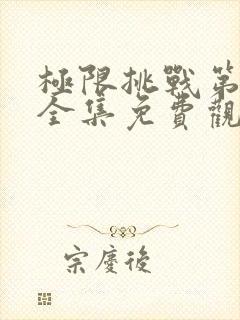 極限挑戰第
全集免費觀
宗慶後